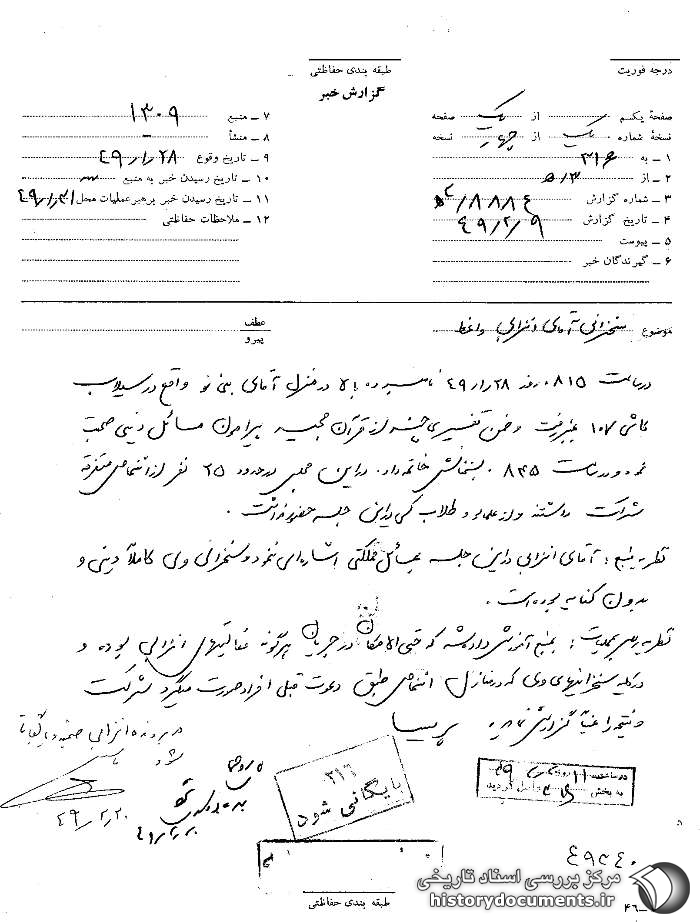 درجه فوریت
طبقه بندی حفاظتی
گزارش خبر
صفحهٔ یکم از یک صفحه
نسخهٔ شماره یک از چهار نسخه
۱ - به ۳۱۶
۲ - از ۳/ﻫ
۳ - شماره گزارش ۸۸۸٤/
۴ - تاریخ گزارش ٤۹/۲/۹
۵ - پیوست
۶ - گیرندگان خبر
۷ - منبع ۱۳۰۹
۸ - منشأ -
۹ - تاریخ وقوع ۲۸/۱/٤۹
۱۰ - تاریخ رسیدن خبر به منبع
۱۱ - تاریخ رسیدن خبر برهبرعملیات محل ۳۱/۱/٤۹
۱۲ - ملاحظات حفاظتی
موضوع سخنرانی آقای انزابی واعظ
عطف
پیرو
در ساعت ۸۱۵ روز ۲۸/۱/٤۹ نامبرده بالا در منزل آقای واقع در سیلاب
کاشی ۱۰۷ بمنبر رفت و ضمن تفسیر آیه‌ای چند از قرآن مجید پیرامون مسائل دینی صحبت
نمود و در ساعت ۸۴۵ بسخنانش خاتمه داد. در این مجلس در حدود ۲۵ نفر از اشخاص متفرقه
شرکت داشتند و از علماء و طلاب کسی در این جلسه حضور نداشت.
نظریه منبع: آقای انزابی در این جلسه بمسائل مملکتی اشاره‌ای ننمود و سخنرانی وی کاملاً دینی و
بدون کنایه بوده است.
نظریه رهبر عملیات: بمنبع آموزش داده شد که حتی الامکان در جریان هرگونه فعالیتهای انزابی بوده و
در کلیه سخنرانیهای وی که در منازل اشخاص طبق دعوت قبلی افراد صورت میگیرد شرکت
و نتیجه را عیناً گزارش نماید. پریسا
در پرونده انزابی ضمیمه و بایگانی
شود
٤۹/۲/۲۰
۳۱۶
بایگانی شود
در ساعت ۱۱ روز
به بخش ۳۱۶ واصل گردید
٤۹۳٤۰
طبقه بندی حفاظتی
مرکز بررسی اسناد تاریخی
historydocuments.ir